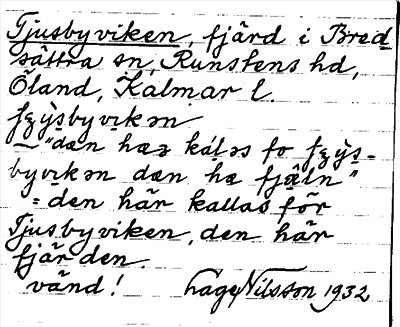 Tjusbyviken, fjärd i Bred-
sättra sn, Runstens hd,
Öland, Kalmar l.
byvikən
"dæn hæʒ kál̥əs fo
byvikən dæn hæ fjæ̂ln"
= den här kallas för
Tjusbyviken, den här
fjärden.
vänd! Hage Nilsson 1932